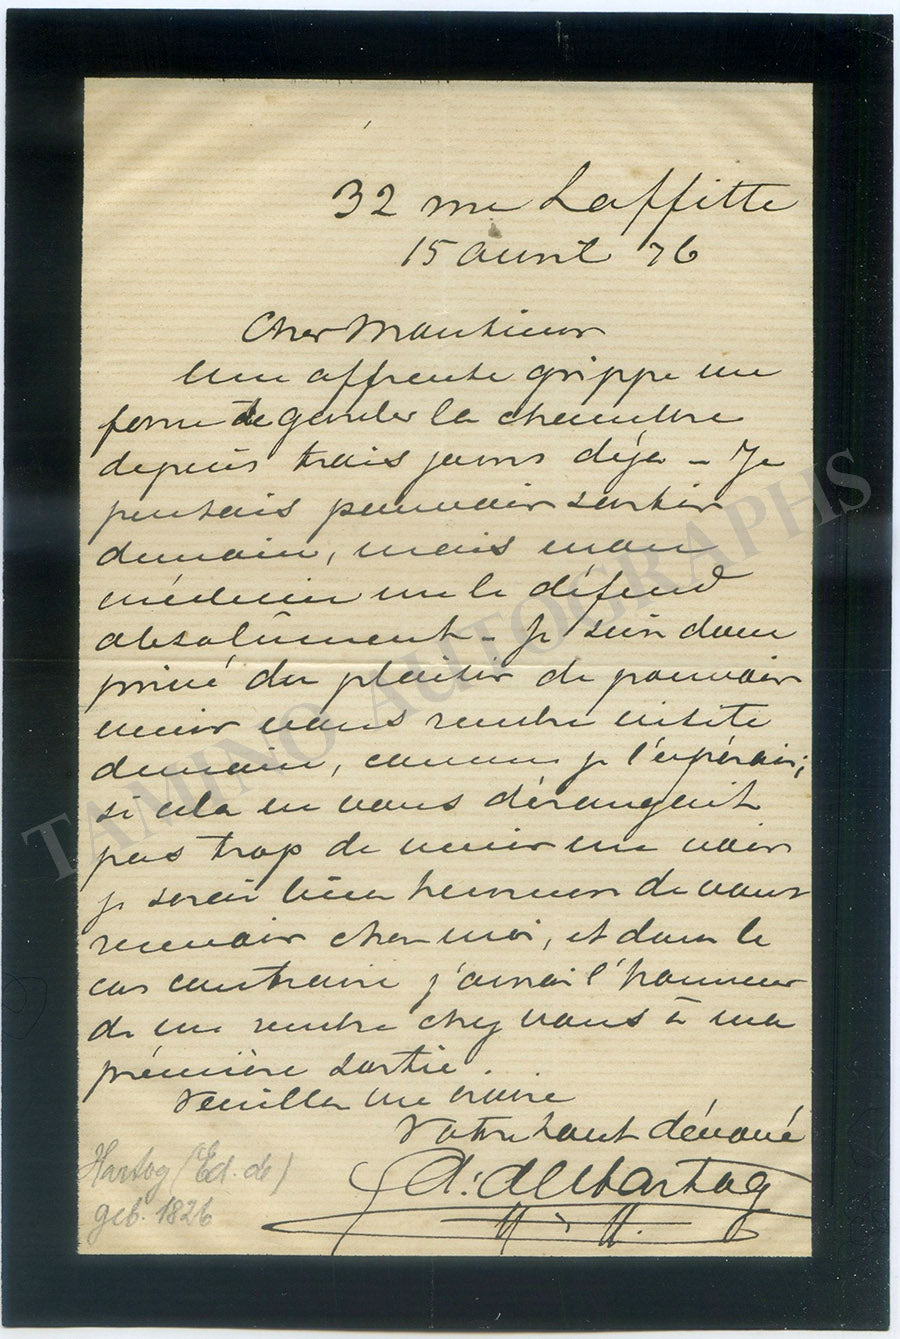 32 rue Laffitte
15 avril 76
Cher Monsieur
Une affreuse grippe me
force de garder la chambre
depuis trois jours déja – Je
pensais pouvoir sortir
demain, mais mon
médecin me le défend
absolûment – Je suis donc
privé du plaisir de pouvoir
venir vous rendre visite
demain, comme je l'espérais;
si cela ne vous dérangeait
pas trop de venir me voir
je serais bien heureux de vous
recevoir chez moi, et dans le
cas contraire j'aurai l'honneur
de me rendre chez vous à ma
prémière sortie.
Veuillez me croire
Votre tout dévoué
Ed. de Hartog
Hartog (Ed. de)
geb. 1826
TAMINO AUTOGRAPHS